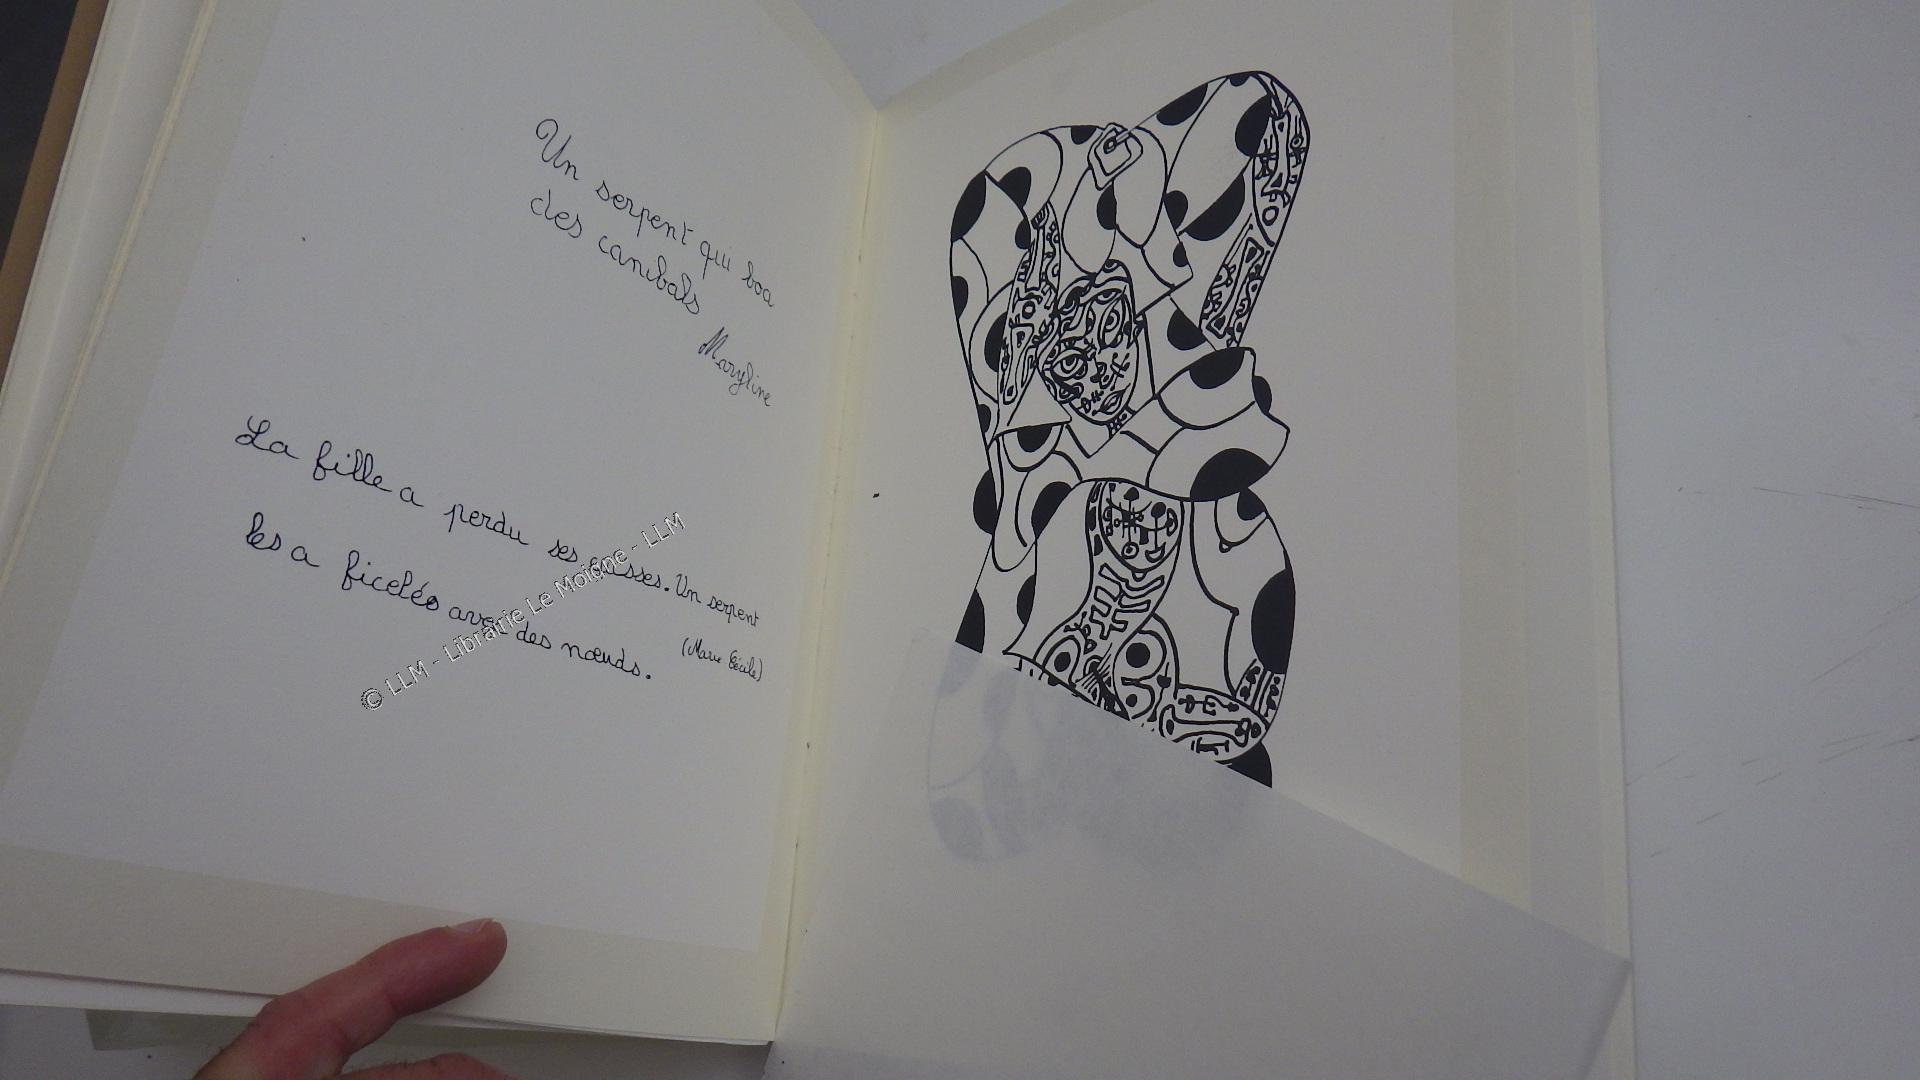 Un serpent qui boa
des canibals
Maryline
La fille a perdu ses cuisses. Un serpent
les a ficelés avec des nœuds.
(Marie Cécile)
© LLM - Librairie Le Moigne - LLM